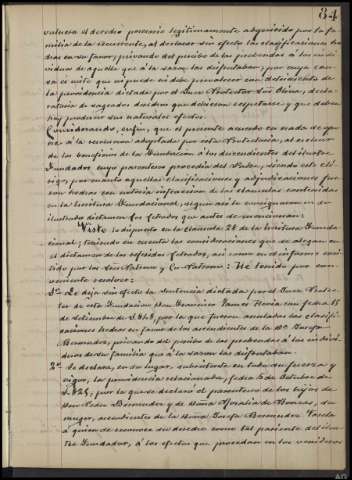 84
valiera el derecho preexiste legitimamente adquirido por la fa-
milia de la recurrente, al declarar sin efecto las clasificaciones he-
chas en su favor, privando del percibo de las prebendas á los indi-
viduos de aquella que á la sazon las disfrutaban; por cuya cau-
sa si vale que no puede ni debe prevalecer con detrimento de
la providencia dictada por el Juez Protector Sor Oliva, decla-
ratoria de sagrados derechos que debieron respetarse y que deben
hoy producir sus naturales efectos.
Considerando, enfin, que el presente acuerdo en nada se opo-
ne á la resolucion adoptada por esta Protectoría, al excluir
de los beneficios de la Fundacion á los descendientes del ilustre
Fundador cuyo parentesco procedia del
por cuanto aquellas clasificaciones y adjudicaciones fue-
ron hechas con notoria infraccion de las clausulas contenidas
en la Escritura Fundacional, segun asi lo consignaron en su
ilustrado dictamen los Letrados que antes se mencionan:
Visto lo dispuesto en la Clausula 24 de la Escritura Funda-
cional; teniendo en cuenta las consideraciones que se alegan en
el dictamen de los referidos Letrados, asi como en el informe emi-
tido por los Sres Patrono y Co-Patrono; He tenido por con-
veniente resolver:
1º Se deja sin efecto la Sentencia dictada por el Juez Protec-
tor de esta Fundacion Don Francisco Ramos Neria con fecha 15
de diciembre de 1848, por la que fueron anuladas las clasifi-
caciones hechas en favor de los ascendientes de la Dª Josefa
Bermudez, privando del percibo de las prebendas á los indivi-
duos de su familia que á la sazon las disfrutaban.
2º Se declara, en su lugar, subsistente en toda su fuerza y
vigor, la providencia relacionada, fecha 5 de Octubre de
1825, por la que se declaró el parentesco de los hijos de
Don Pedro Bermudez y de Doña Rosalia de Borras, su
muger, ascendientes de la Doña Josefa Bermudez Varela
á quien se reconoce su derecho como tal pariente del ilus-
tre Fundador, á los efectos que procedan en los venideros